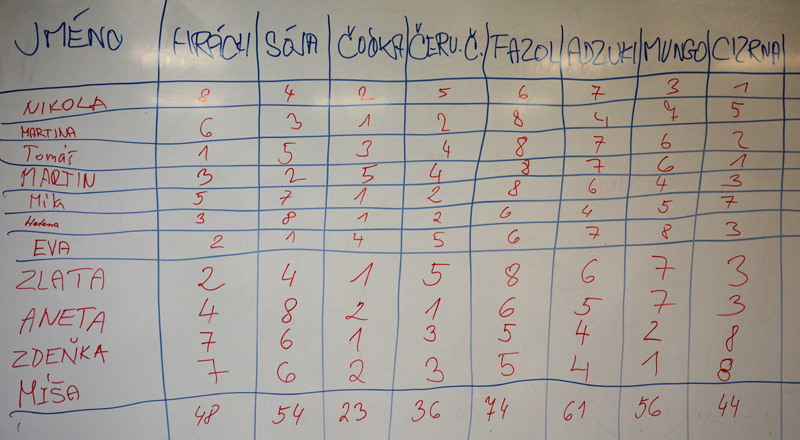 JMÉNO HRÁCH SÓJA ČOČKA ČERV.Č. FAZOL ADZUKI MUNGO CIZRNA
NIKOLA 8 4 2 5 6 7 3 1
MARTINA 6 3 1 2 8 4 7 5
Tomáš 1 5 3 4 8 7 6 2
MARTIN 3 2 5 4 8 7 6 1
Mila 5 7 1 2 8 6 4 7
Helena 3 8 1 2 6 4 5 7
EVA 2 1 4 5 6 7 8 3
ZLATA 2 4 1 5 8 6 7 3
ANETA 4 8 2 1 6 5 7 3
ZDEŇKA 7 6 1 3 5 4 2 8
MÍŠA 7 6 2 3 5 4 1 8
48 54 23 36 74 61 56 44